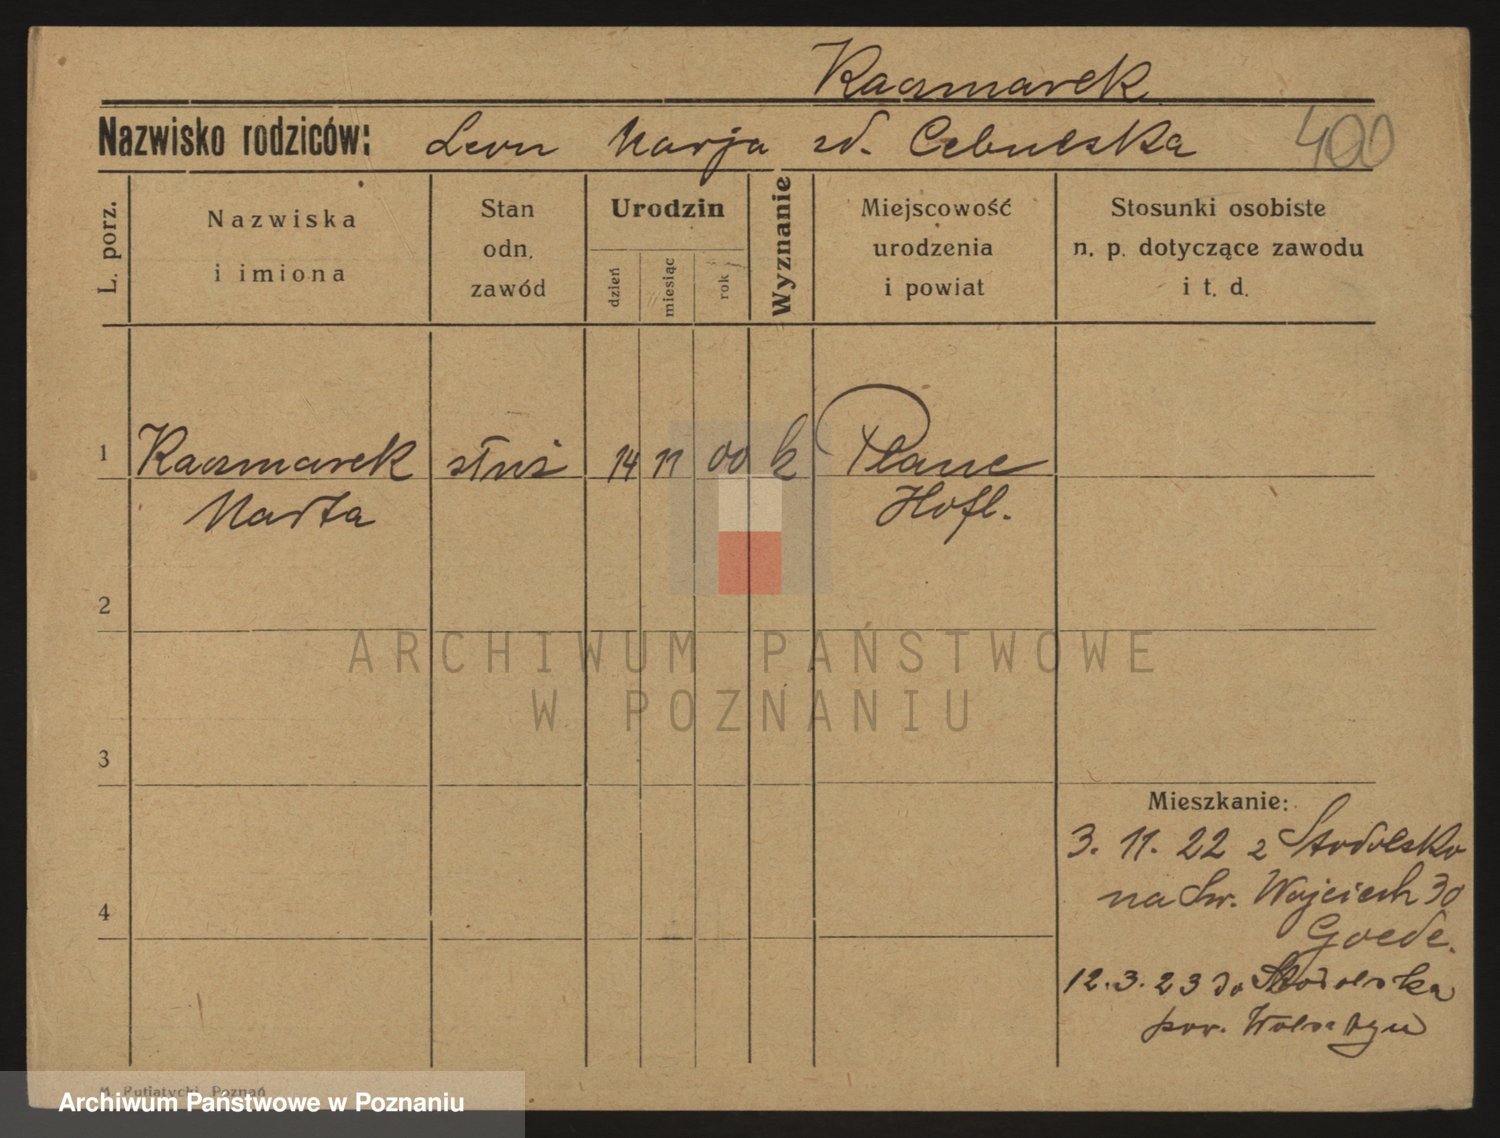 Kaczmarek
Nazwisko rodziców: Leon Marja zd. Cebulska 400
L. porz.
Nazwiska
i imiona
Stan
odn.
zawód
Urodzin
dzień
miesiąc
rok
Wyznanie
Miejscowość
urodzenia
i powiat
Stosunki osobiste
n. p. dotyczące zawodu
i t. d.
1 Kaczmarek służ 14 11 00 k Plane
Marta Hofl.
2
ARCHIWUM PAŃSTWOWE
W POZNANIU
3
Mieszkanie:
3. 11. 22 z Stodolsko
na Św. Wojciech 30
4
Goede.
12. 3. 23 do Stodolska
pow. Wolsztyn
M. Putiatycki, Poznań
Archiwum Państwowe w Poznaniu